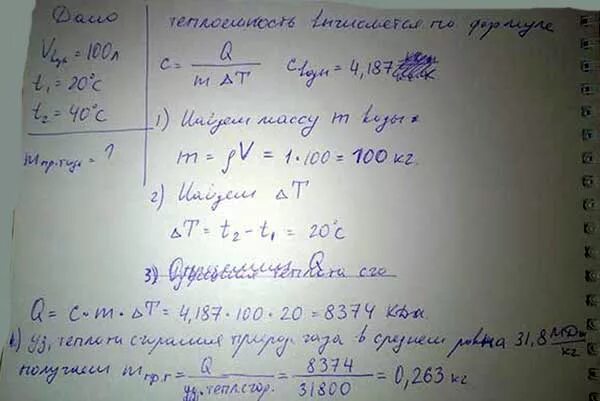 Дано
Vвул = 100л
t₁ = 20°С
t₂ = 40°С
mпр.газа = ?
теплоемкость вычисляется по формуле
c = Q / m ΔT
= 4,187
1) Найдем массу m воды
m = ρV = 1·100 = 100 кг.
2) Найдем ΔT
ΔT = t₂ - t₁ = 20°С
3) Q
Q = c·m·ΔT = 4,187·100·20 = 8374 КДж
уд. теплота сгорания природ. газа в среднем равна 31,8 МДж/кг
получаем mпр.г = Q / уд.тепл.сгор. = 8374 / 31800 = 0,263 кг